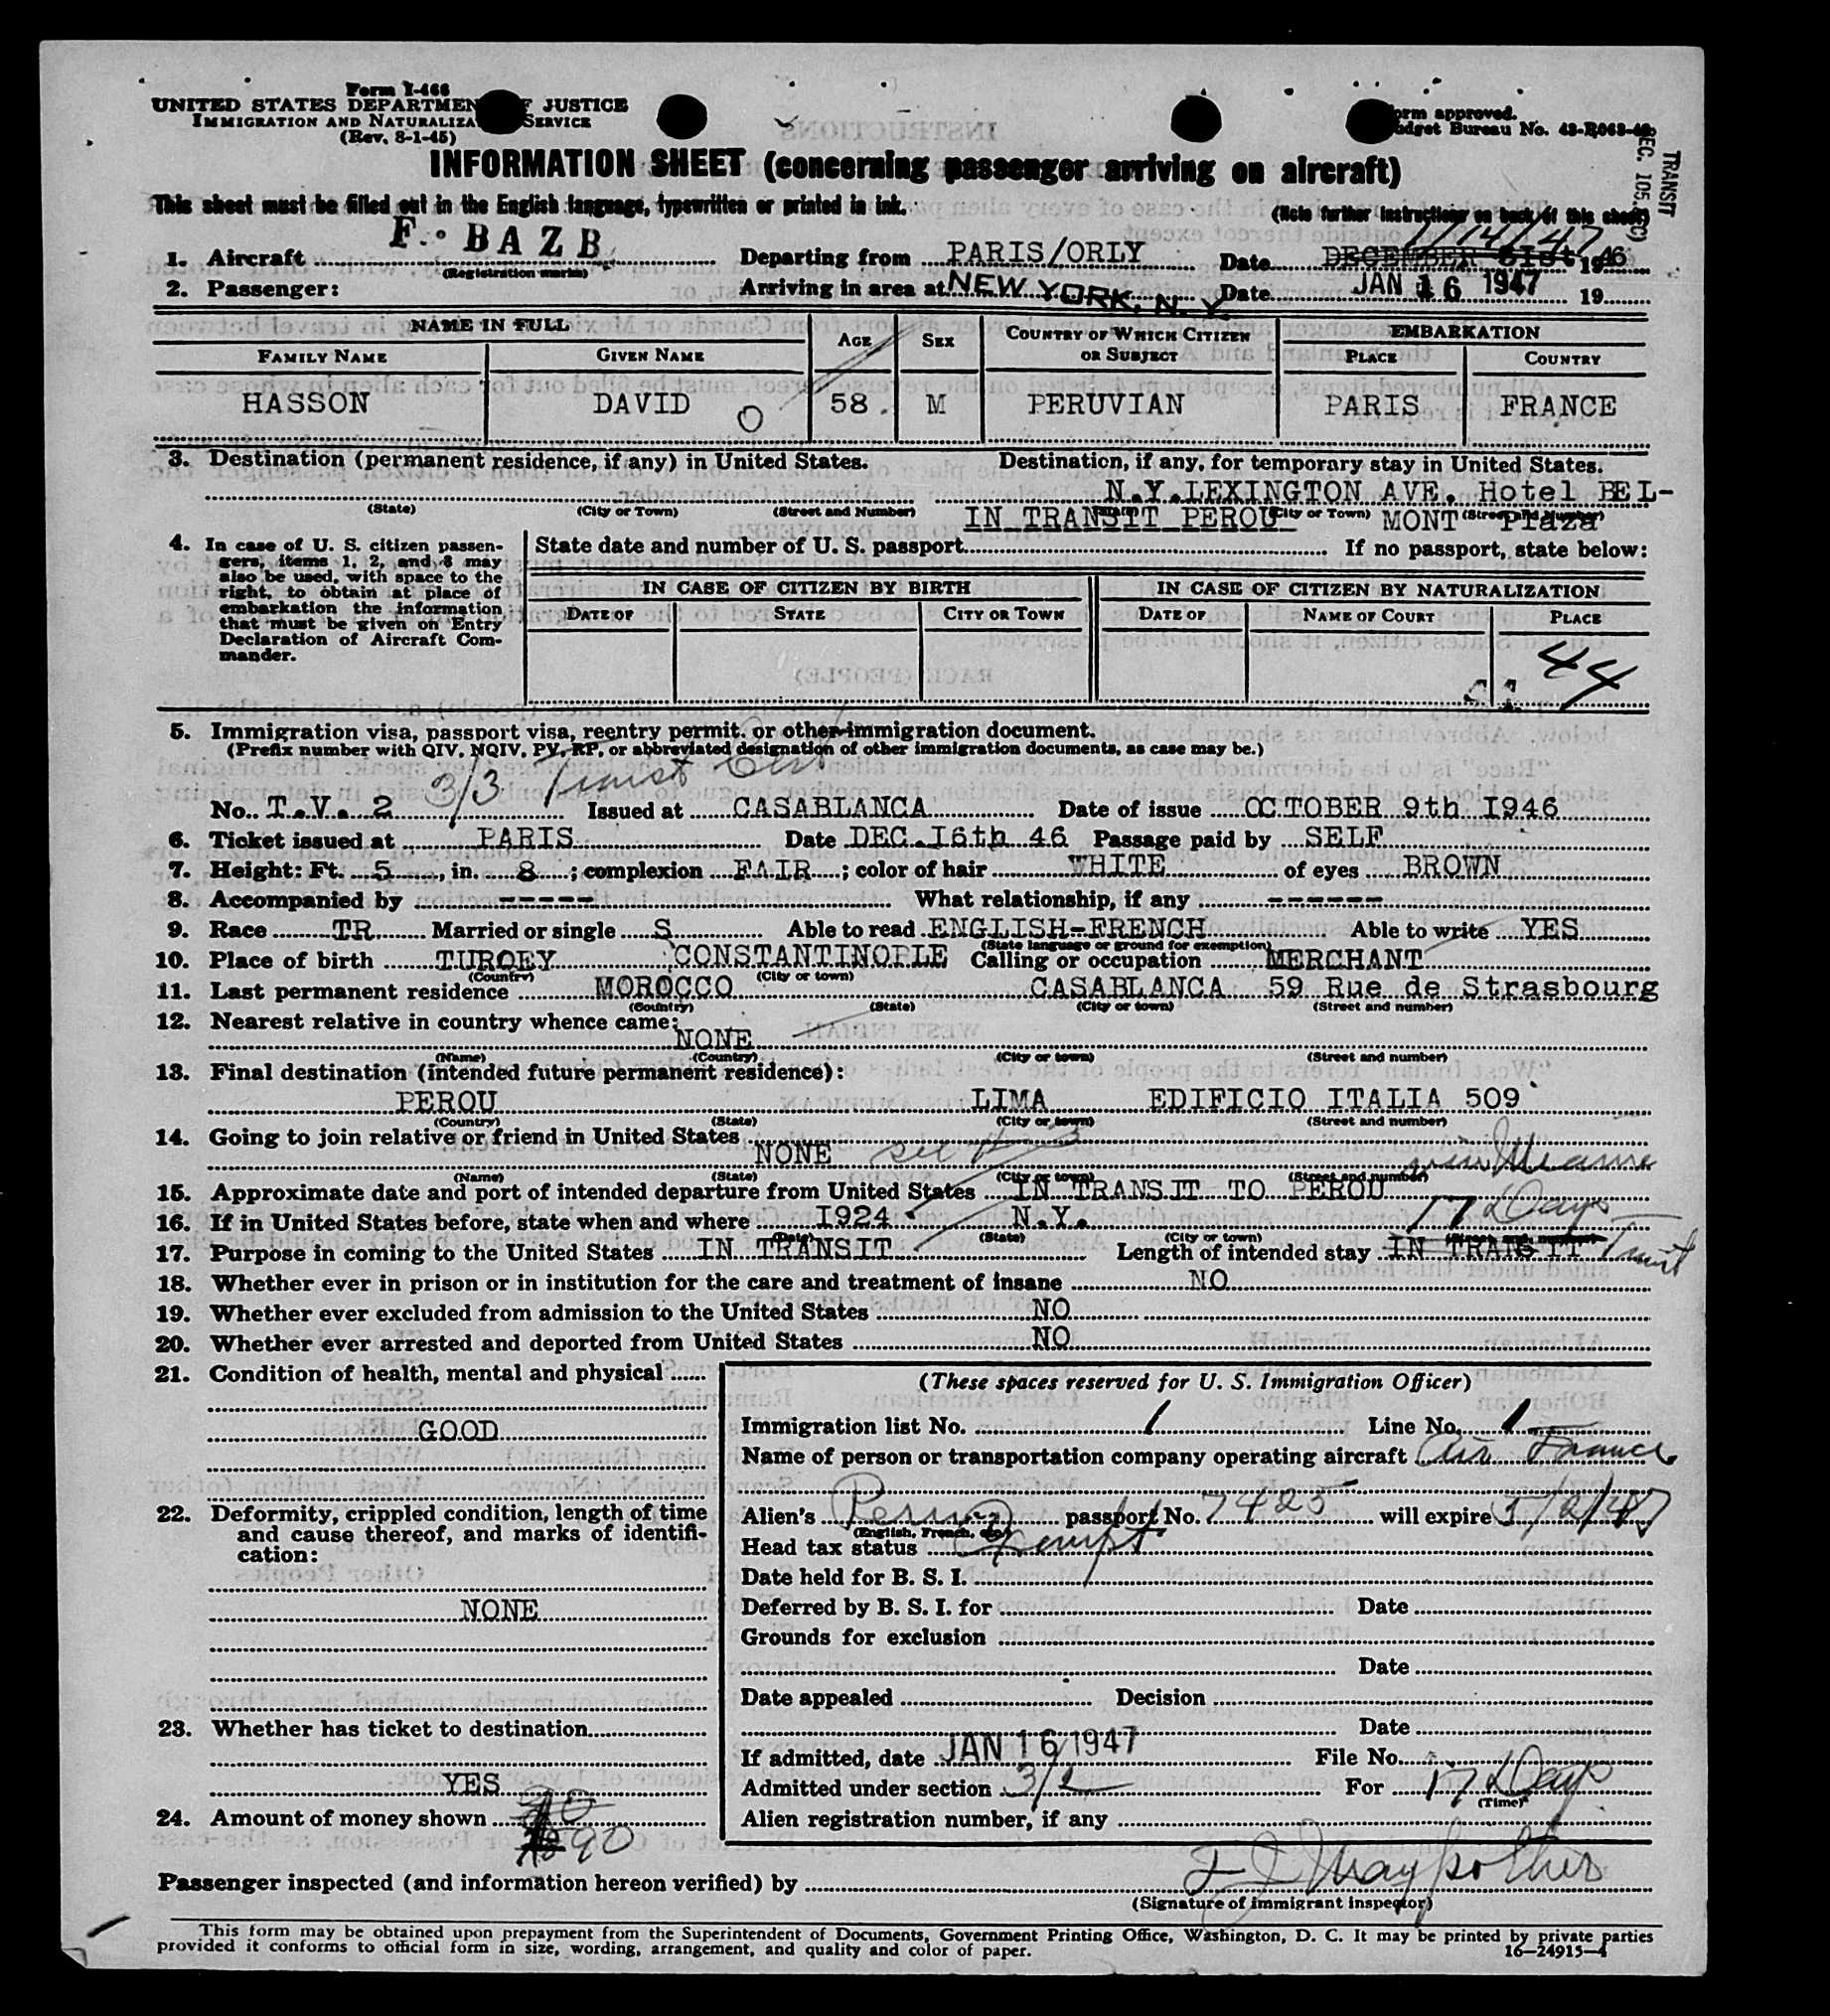 Form I-466
UNITED STATES DEPARTMEN F JUSTICE
IMMIGRATION AND NATURALIZA SERVICE
(Rev. 8-1-45)
orm approved.
dget Bureau No. 43-R063-42
TRANSIT
INFORMATION SHEET (concerning passenger arriving on aircraft)
This sheet must be filled out in the English language, typewritten or printed in ink.
(Note further instructions on back of this sheet)
1. Aircraft F. BAZB (Registration marks) Departing from PARIS/ORLY Date DECEMBER 31st 1946 1/14/47
2. Passenger: Arriving in area at NEW YORK, N. Y. Date JAN 16 1947 19
NAME IN FULL AGE SEX COUNTRY OF WHICH CITIZEN OR SUBJECT EMBARKATION
FAMILY NAME GIVEN NAME PLACE COUNTRY
HASSON DAVID O 58. M PERUVIAN PARIS FRANCE
3. Destination (permanent residence, if any) in United States. Destination, if any, for temporary stay in United States.
N.Y. LEXINGTON AVE. Hotel BEL-
(State) (City or Town) (Street and Number) IN TRANSIT PEROU (City or Town) MONT Plaza (Street and Number)
4. In case of U. S. citizen passengers, items 1, 2, and 8 may also be used, with space to the right, to obtain at place of embarkation the information that must be given on Entry Declaration of Aircraft Commander.
State date and number of U. S. passport If no passport, state below:
IN CASE OF CITIZEN BY BIRTH IN CASE OF CITIZEN BY NATURALIZATION
DATE OF STATE CITY OR TOWN DATE OF NAME OF COURT PLACE
44
5. Immigration visa, passport visa, reentry permit, or other immigration document.
(Prefix number with QIV, NQIV, PV, RP, or abbreviated designation of other immigration documents, as case may be.)
3/3 Transit Cert
No. T.V. 2 Issued at CASABLANCA Date of issue OCTOBER 9th I946
6. Ticket issued at PARIS Date DEC. I6th 46 Passage paid by SELF
7. Height: Ft. 5, in. 8; complexion FAIR; color of hair WHITE of eyes BROWN
8. Accompanied by ----- What relationship, if any ------
9. Race TR Married or single S Able to read ENGLISH-FRENCH Able to write YES
(State language or ground for exemption)
10. Place of birth TURQEY CONSTANTINOPLE Calling or occupation MERCHANT
(Country) (City or town)
11. Last permanent residence MOROCCO CASABLANCA 59 Rue de Strasbourg
(Country) (State) (City or town) (Street and number)
12. Nearest relative in country whence came:
NONE
(Name) (Country) (City or town) (Street and number)
13. Final destination (intended future permanent residence):
PEROU LIMA EDIFICIO ITALIA 509
(Country) (State) (City or town) (Street and number)
14. Going to join relative or friend in United States
NONE see # 3
(Name) (State) (City or town) (Street and number)
15. Approximate date and port of intended departure from United States IN TRANSIT TO PEROU
16. If in United States before, state when and where I924 N.Y. 17 Days
(Date) (State) (City or town)
17. Purpose in coming to the United States IN TRANSIT Length of intended stay IN TRANSIT Transit
18. Whether ever in prison or in institution for the care and treatment of insane NO
19. Whether ever excluded from admission to the United States NO
20. Whether ever arrested and deported from United States NO
21. Condition of health, mental and physical
GOOD
22. Deformity, crippled condition, length of time and cause thereof, and marks of identification:
NONE
23. Whether has ticket to destination
YES
24. Amount of money shown 90
(These spaces reserved for U. S. Immigration Officer)
Immigration list No. 1 Line No. 1
Name of person or transportation company operating aircraft Air France
Alien's Peruv passport No. 7425 will expire 5/2/47
(English, French, etc.)
Head tax status Exempt
Date held for B. S. I.
Deferred by B. S. I. for Date
Grounds for exclusion
Date
Date appealed Decision
Date
If admitted, date JAN 16 1947 File No.
Admitted under section 3/2 For 17 Days
(Time)
Alien registration number, if any
Passenger inspected (and information hereon verified) by
(Signature of immigrant inspector)
This form may be obtained upon prepayment from the Superintendent of Documents, Government Printing Office, Washington, D. C. It may be printed by private parties
provided it conforms to official form in size, wording, arrangement, and quality and color of paper. 16—24915-4